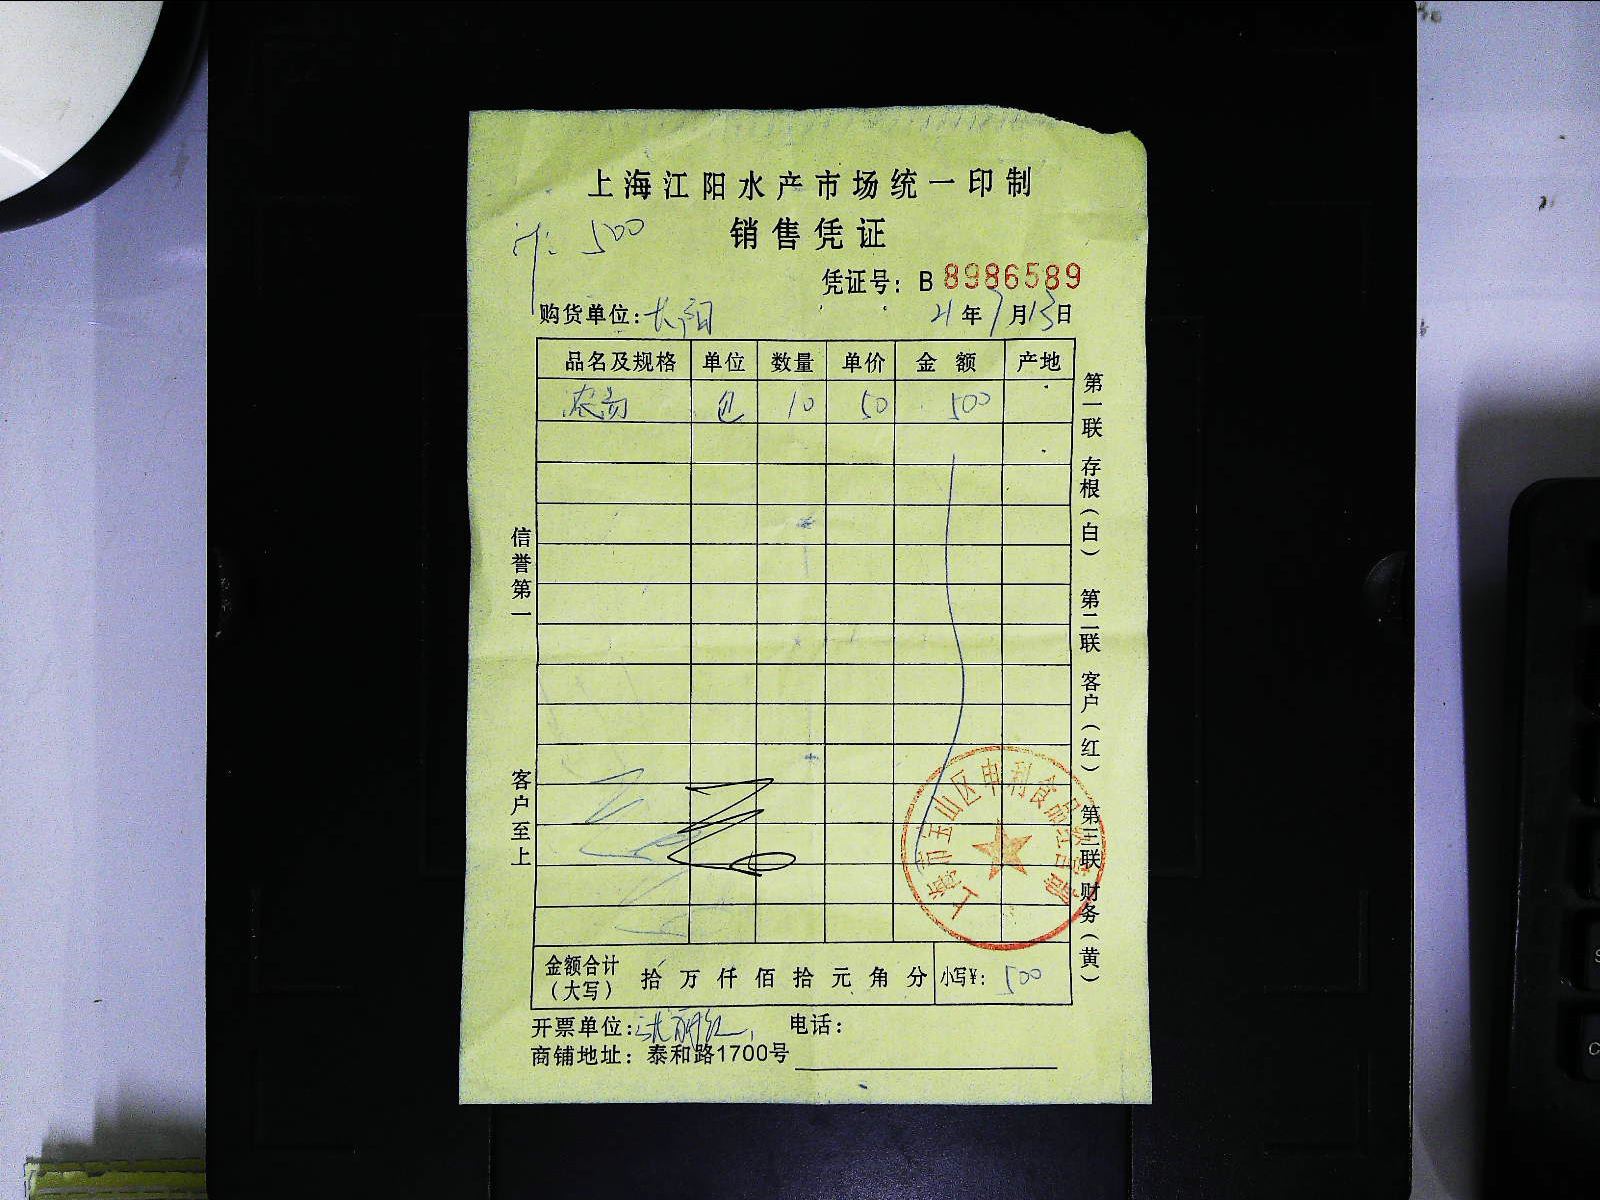 上海江阳水产市场统一印制
销售凭证
计: 500
凭证号: B 8986589
购货单位: 长阳 21年7月13日
品名及规格 单位 数量 单价 金额 产地
包 10 50 500
信誉第一
客户至上
第一联 存根(白) 第二联 客户(红) 第三联 财务(黄)
上海市宝山区申利食品经营部
金额合计(大写) 拾万仟佰拾元角分 小写¥: 500
开票单位: 电话:
商铺地址: 泰和路1700号